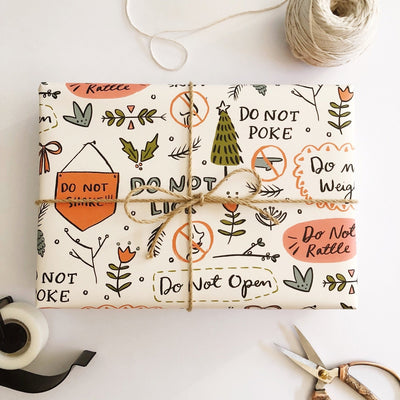 Do Not
Rattle
DO NOT
POKE
Do n
Weig
DO NOT
SHAKE!!!
DO NOT
LICK
Do Not
Rattle
DO NOT
POKE
Do Not Open